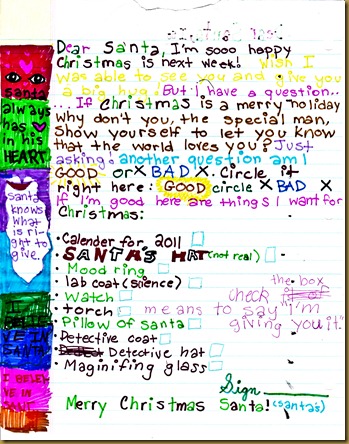 Dear Santa, I'm sooo happy
Christmas is next week! Wish I
was able to see you and give you
a big hug! But I have a question..
... If Christmas is a merry holiday
why don't you, the special man,
Show yourself to let you know
that the world loves you? Just
asking! another question am I
GOOD or X BAD X. Circle it
right here: GOOD circle X BAD X
If I'm good here are things I want for
Christmas:
• Calender for 2011
• SANTA'S HAT (not real)
• Mood ring
• lab coat (science)
• Watch
• torch
• Pillow of santa
• Detective coat
• Detective hat
• Maginifing glass
the box
check it
means to say "I'm
giving you it."
Sign
Merry Christmas Santa! (santa's)
santa
always
has
in his
HEART
santa
knows
what
is ri-
ght to
give.
I BELIE
VE IN
SANTA
I BELEV
VE IN
SANT